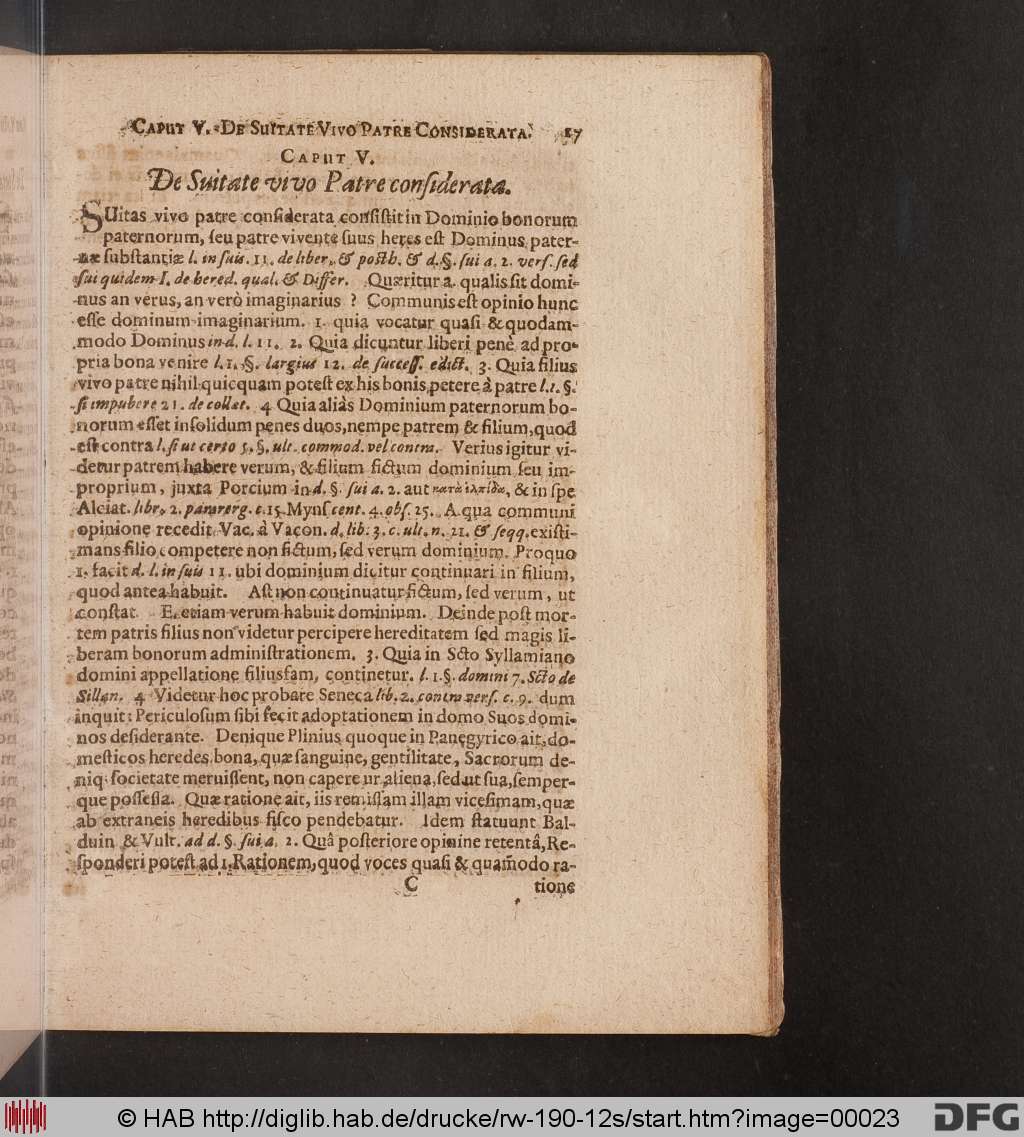 CAPUT V. DE SUITATE VIVO PATRE CONSIDERATA. 17
CAPUT V.
De Suitate vivo Patre considerata.
SUitas vivo patre considerata consistit in Dominio bonorum
paternorum, seu patre vivente suus heres est Dominus pater-
næ substantiæ l. in suis. 11. de liber. & posth. & d. §. sui a. 2. vers. sed
sui quidem I. de hered. qual. & Differ. Quæritur a. qualis sit domi-
nus an verus, an verò imaginarius ? Communis est opinio hunc
esse dominum imaginarium. 1. quia vocatur quasi & quodam-
modo Dominus in d. l. 11. 2. Quia dicuntur liberi penè ad pro-
pria bona venire l. 1. §. largius 12. de success. edict. 3. Quia filius
vivo patre nihil quicquam potest ex his bonis petere à patre l. 1. §.
si impubere 21. de collat. 4 Quia aliàs Dominium paternorum bo-
norum esset insolidum penes duos, nempe patrem & filium, quod
est contra l. si ut certo 5. §. ult. commod. vel contra. Verius igitur vi-
detur patrem habere verum, & filium fictum dominium seu im-
proprium, juxta Porcium in d. §. sui a. 2. aut κατὰ ἐλπίδα, & in spe
Alciat. libr. 2. pararerg. c. 15 Myns cent. 4. obs. 25. A qua communi
opinione recedit Vac. à Vacon. d. lib. 3. c. ult. n. 21. & seqq. existi-
mans filio competere non fictum, sed verum dominium. Pro quo
1. facit d. l. in suis 11. ubi dominium dicitur continuari in filium,
quod antea habuit. Ast non continuatur fictum, sed verum, ut
constat. E. etiam verum habuit dominium. Deinde post mor-
tem patris filius non videtur percipere hereditatem sed magis li-
beram bonorum administrationem. 3. Quia in Scto Syllamiano
domini appellatione filiusfam, continetur. l. 1. §. domini 7. Scto de
Sillan. 4 Videtur hoc probare Seneca lib. 2. contravers. c. 9. dum
inquit: Periculosum sibi fecit adoptationem in domo Suos domi-
nos desiderante. Denique Plinius quoque in Panegyrico ait, do-
mesticos heredes bona, quæ sanguine, gentilitate, Sacrorum de-
niq; societate meruissent, non capere ut aliena, sed ut sua, semper-
que possessa. Quæ ratione ait, iis remissam illam vicesimam, quæ
ab extraneis heredibus fisco pendebatur. Idem statuunt Bal-
duin & Vult. ad d. §. sui a. 2. Quâ posteriore opinine retentâ, Re-
sponderi potest ad 1. Rationem, quod voces quasi & quam̃odo ra-
C tione
© HAB http://diglib.hab.de/drucke/rw-190-12s/start.htm?image=00023
DFG